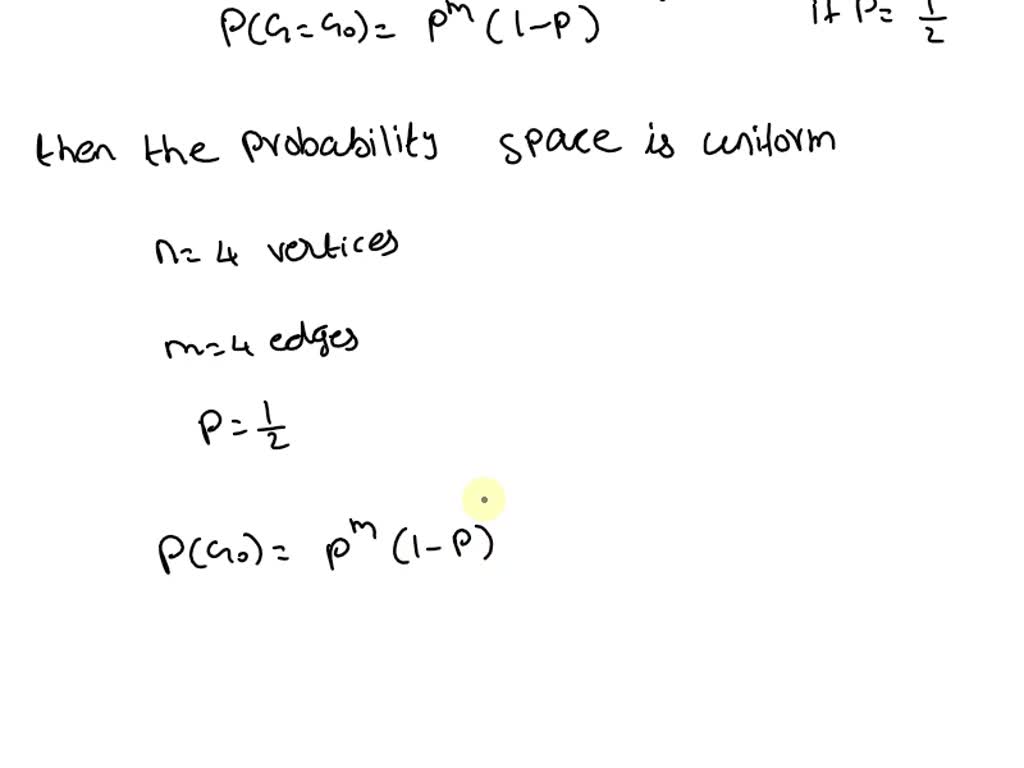 P(G=G₀)= pᵐ (1-P) if P= 1/2
then the probability space is uniform
n=4 vertices
m=4 edges
P=1/2
P(G₀)= pᵐ (1-P)